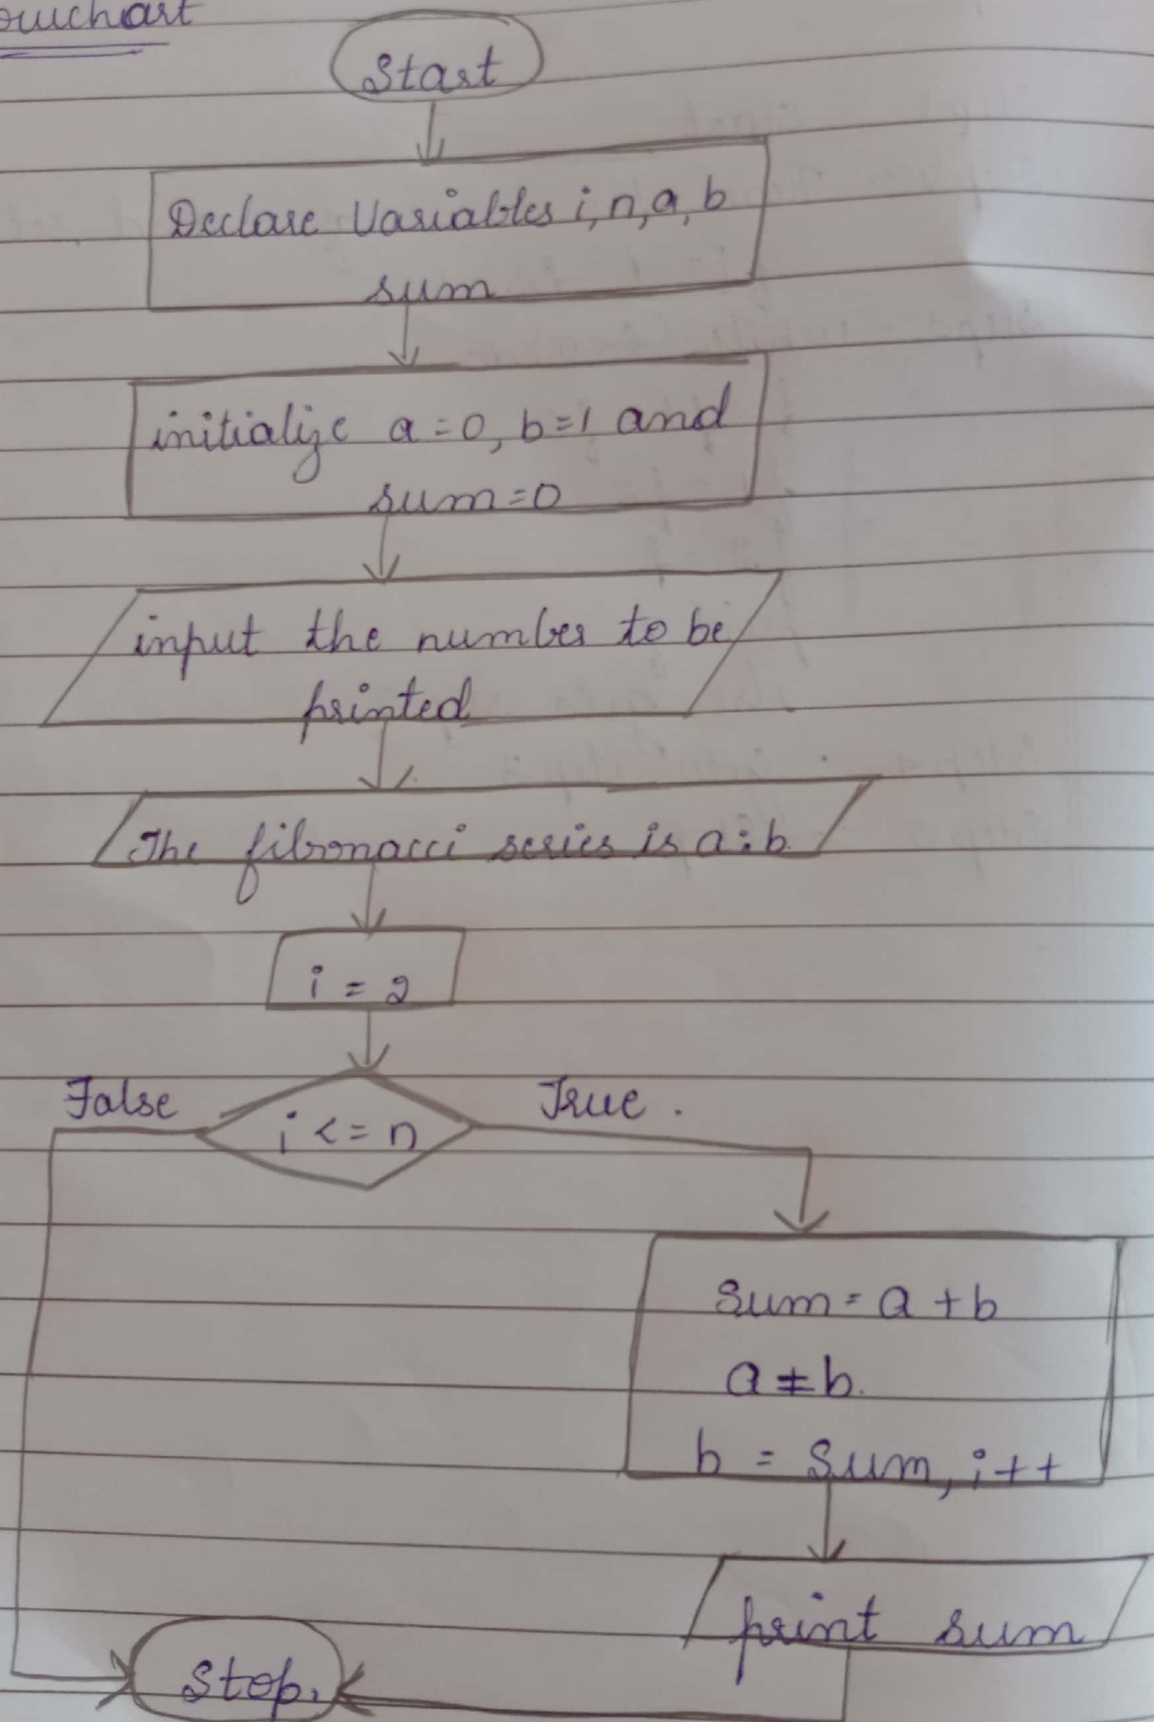 owchart
Start
Declare Variables i, n, a, b
sum
initialize a = 0, b = 1 and
sum = 0
input the number to be
printed
The fibronacci series is a : b.
i = 2
False
True.
i <= n
Sum = a + b
a = b.
b = Sum, i++
print sum
Stop.